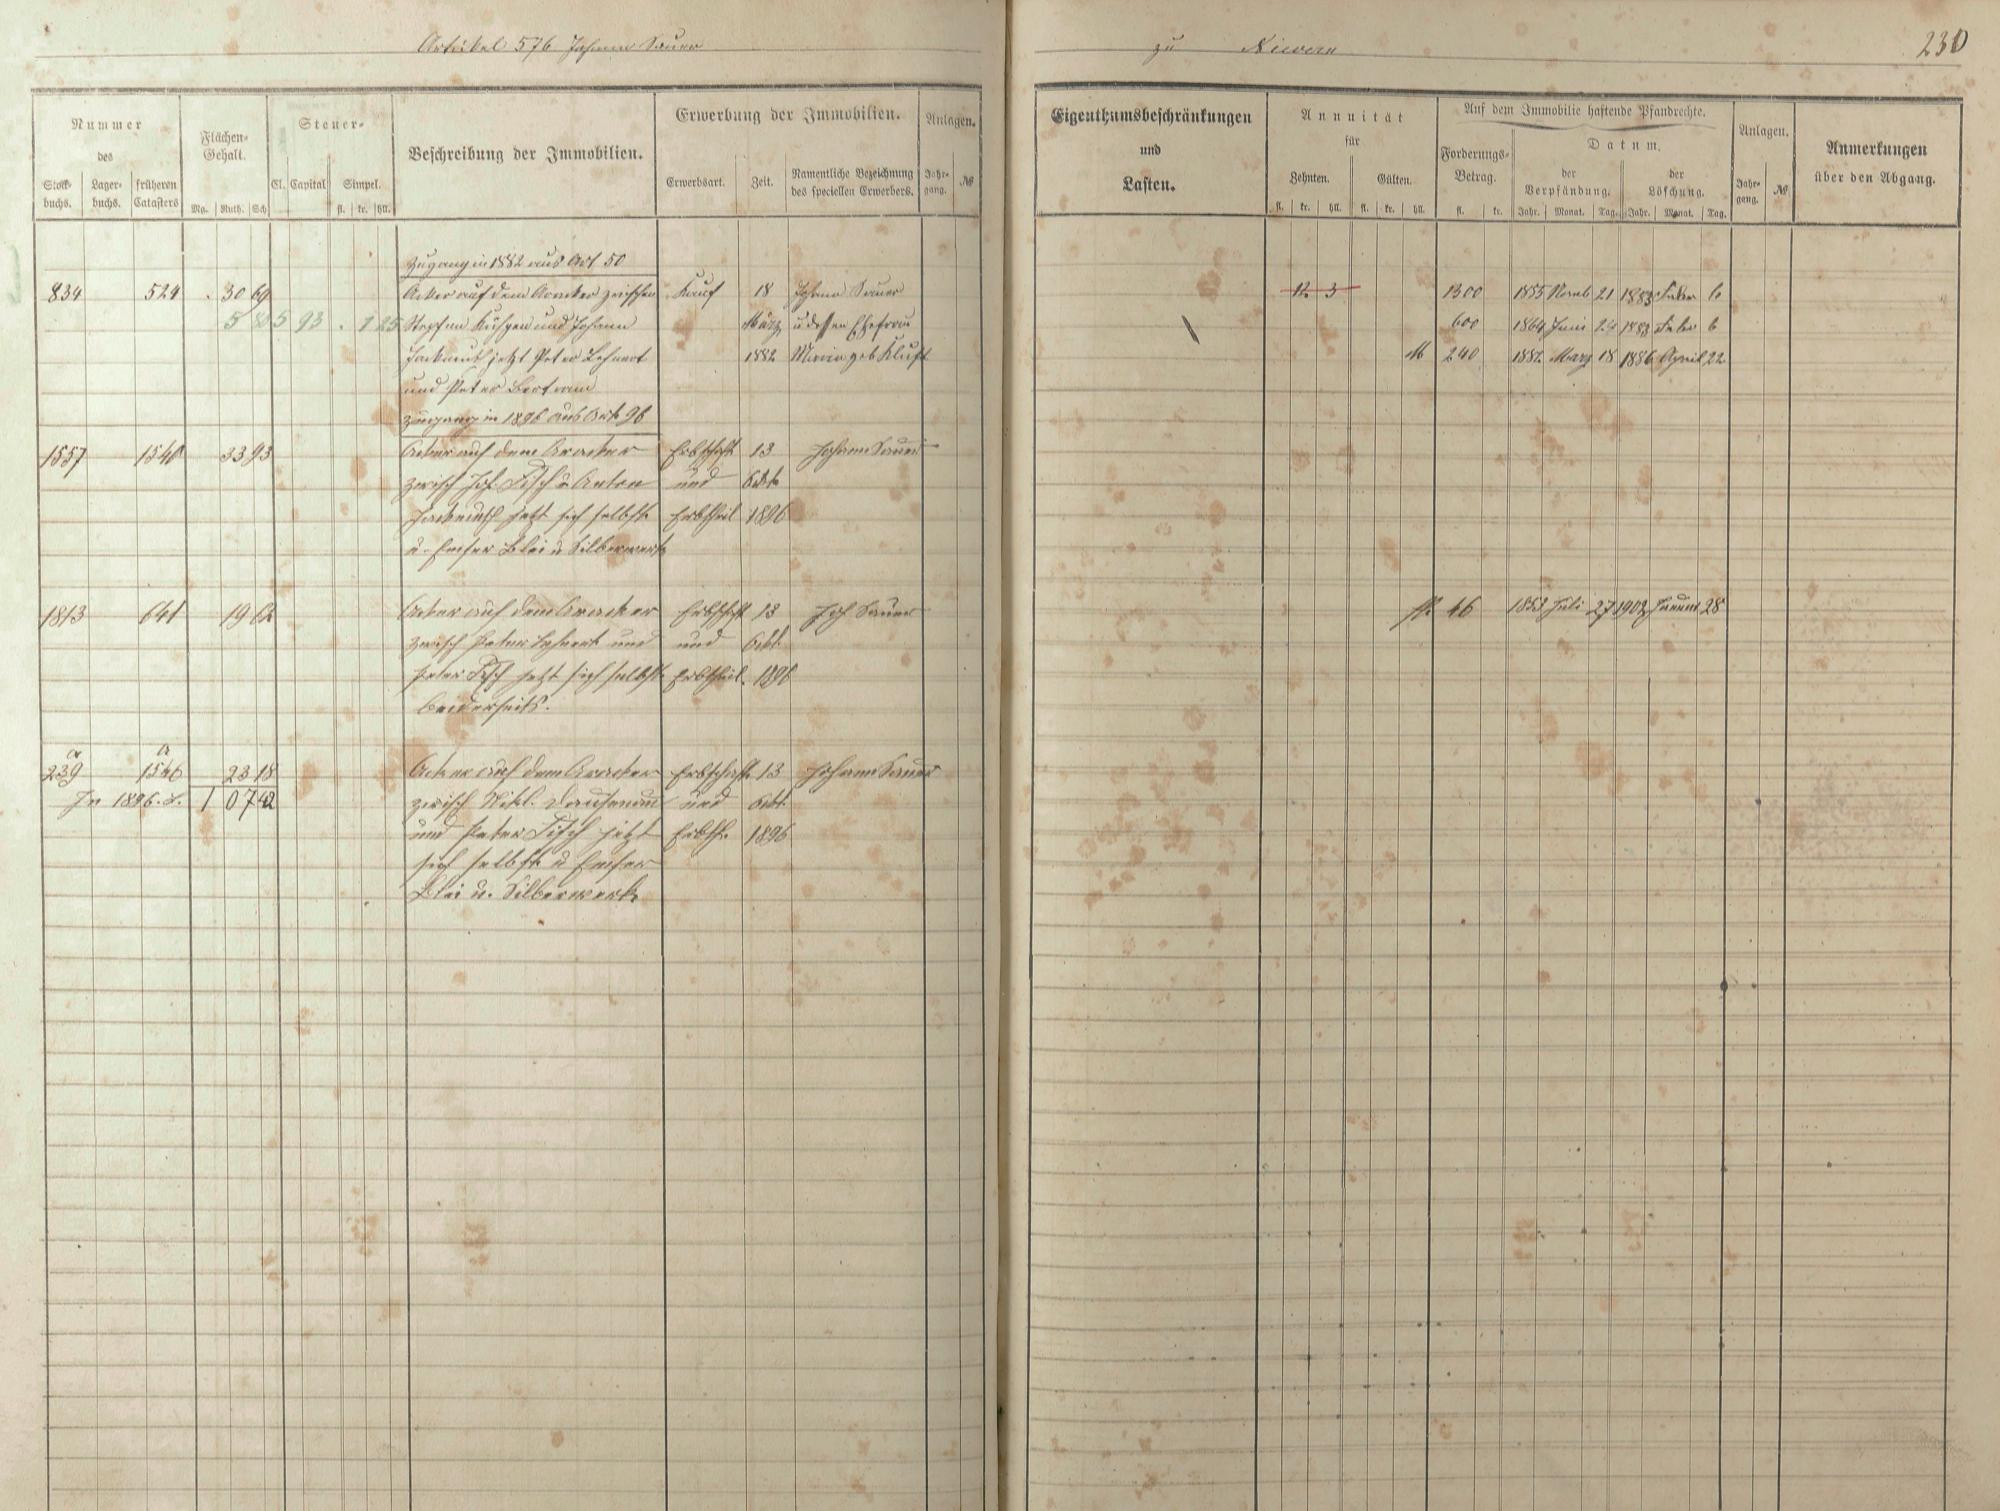 Artikel 576 Johann Sauer
zu Nievern
230
Nummer
des
Stock-buchs. Lager-buchs. früheren Catasters
Flächen-Gehalt.
Mg. Ruth. Sch
Steuer-
Cl. Capital Simpel.
fl. kr. hll.
Beschreibung der Immobilien.
Erwerbung der Immobilien.
Erwerbsart. Zeit. Namentliche Bezeichnung des speciellen Erwerbers.
Anlagen.
Jahr-gang. №
Eigenthumsbeschränkungen
und
Lasten.
Annuität
für
Zehnten. Gülten.
fl. kr. hll. fl. kr. hll.
Auf dem Immobilie haftende Pfandrechte.
Forderungs-Betrag.
fl. kr.
Datum.
der Verpfändung. der Löschung.
Jahr. Monat. Tag. Jahr. Monat. Tag.
Anlagen.
Jahr-gang. №
Anmerkungen
über den Abgang.
Zugang in 1882 aus Art 50
834 524 . 30 69 Acker auf dem Aracker zwischen Kauf 18 Johann Sauer 12 3 1300 1855 Novb 21 1883 Febr 6
5 80 5 93 . 1 25 Stephan und Johann März u dessen Ehefrau 600 1864 Juni 24 1883 Febr 6
jetzt Peter Lehnert 1882 Maria geb Kluft M 240 1882 März 18 1886 April 22
und Peter Bertram
Zugang in 1896 aus Art 96
1557 1540 33 93 Acker auf dem Aracker Erbschaft 13 Johann Sauer
zwisch Joh. Fisch u Anton und Octb
jetzt sich selbst Erbtheil 1896
u. Emser Blei u Silberwerk
1813 641 19 62 Acker auf dem Aracker Erbschaft 13 Joh Sauer fl. 46 1853 Juli 27 1902 Januar 28
zwisch Peter Lehnert und und Octb.
Peter Fisch jetzt sich selbst Erbtheil. 1896
beiderseits.
a a
239 1546 23 18 Acker auf dem Aracker Erbschaft 13 Johann Sauer
In 1896. S. 1 07 42 zwisch Nikl. Dausenau und Octb.
und Peter Fisch jetzt Erbth. 1896
sich selbst u Emser
Blei u. Silberwerk